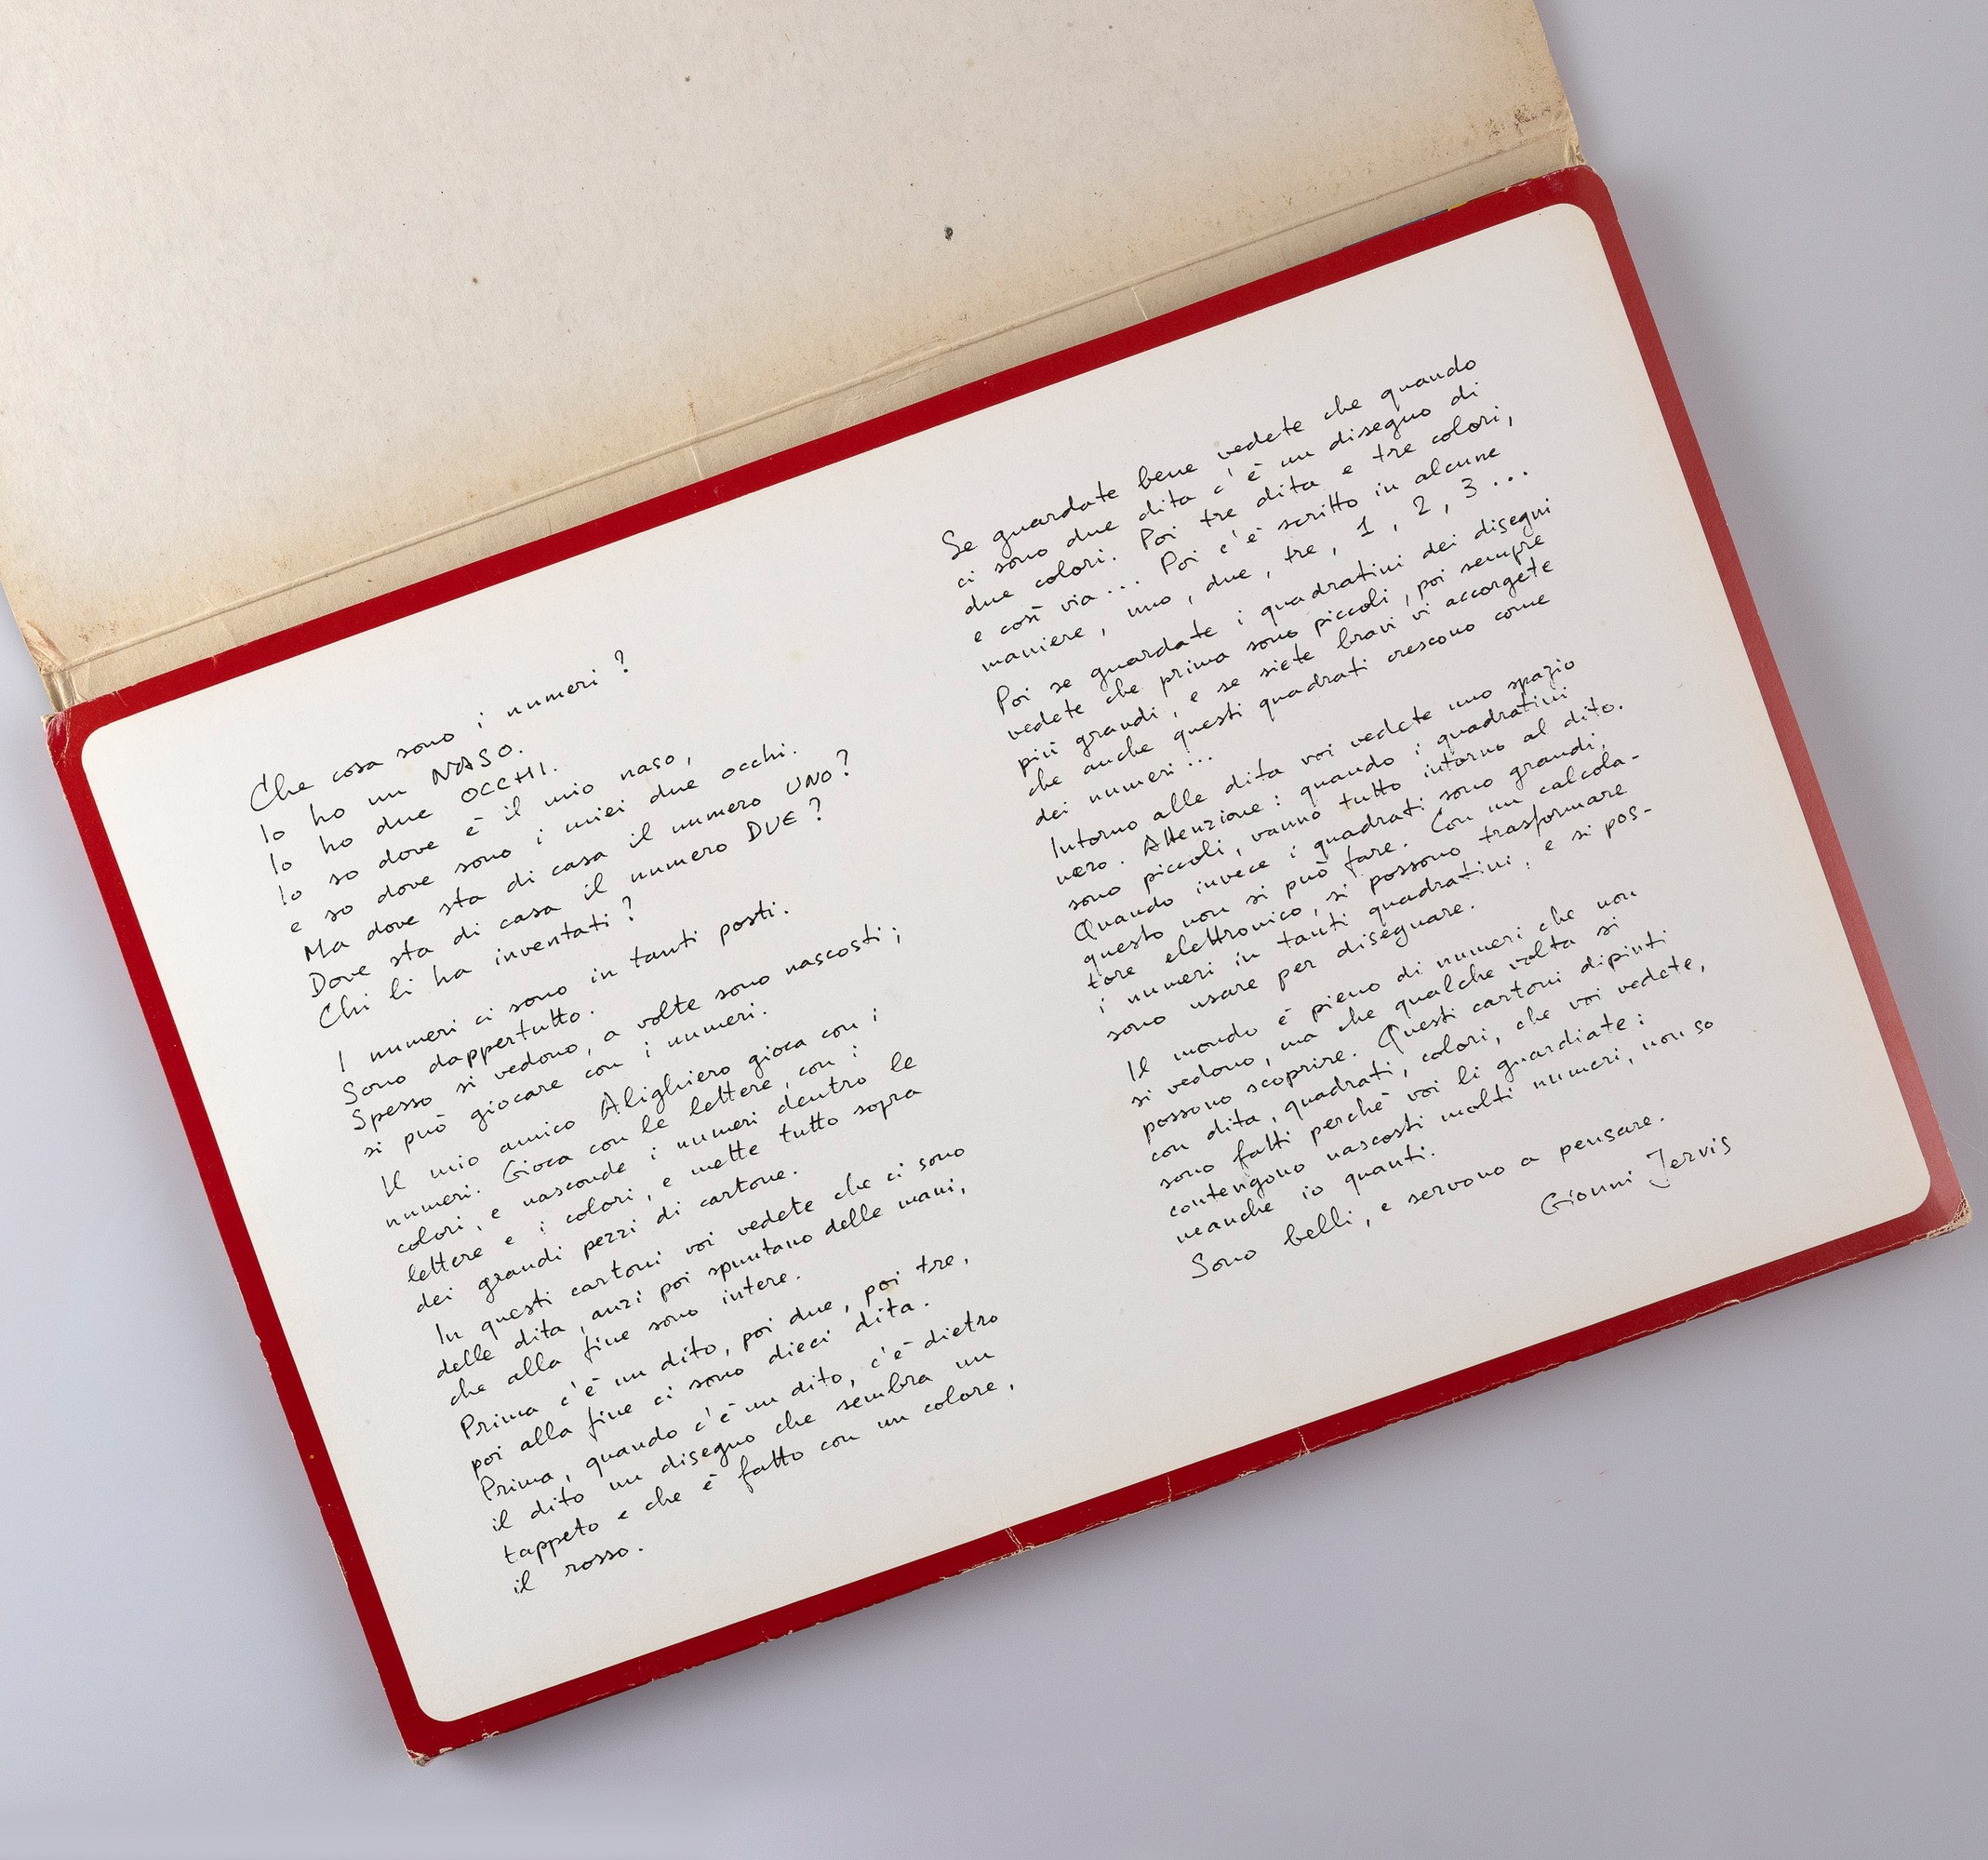 Che cosa sono i numeri ?
Io ho un NASO.
Io ho due OCCHI.
Io so dove è il mio naso,
e so dove sono i miei due occhi.
Ma dove sta di casa il numero UNO?
Dove sta di casa il numero DUE?
Chi li ha inventati ?
I numeri ci sono in tanti posti.
Sono dappertutto.
Spesso si vedono, a volte sono nascosti ;
si può giocare con i numeri.
Il mio amico Alighiero gioca con i
numeri. Gioca con le lettere, con i
colori, e nasconde i numeri dentro le
lettere e i colori, e mette tutto sopra
dei grandi pezzi di cartone.
In questi cartoni voi vedete che ci sono
delle dita, anzi poi spuntano delle mani,
che alla fine sono intere.
Prima c'è un dito, poi due, poi tre,
poi alla fine ci sono dieci dita.
Prima, quando c'è un dito, c'è dietro
il dito un disegno che sembra un
tappeto e che è fatto con un colore,
il rosso.
Se guardate bene vedete che quando
ci sono due dita c'è un disegno di
due colori. Poi tre dita e tre colori,
e così via... Poi c'è scritto in alcune
maniere, uno, due, tre, 1, 2, 3 ...
Poi se guardate i quadratini dei disegni
vedete che prima sono piccoli, poi sempre
più grandi, e se siete bravi vi accorgete
che anche questi quadrati crescono come
dei numeri ...
Intorno alle dita voi vedete uno spazio
nero. Attenzione : quando i quadratini
sono piccoli, vanno tutto intorno al dito.
Quando invece i quadrati sono grandi,
questo non si può fare. Con un calcola-
tore elettronico, si possono trasformare
i numeri in tanti quadratini : e si pos-
sono usare per disegnare.
Il mondo è pieno di numeri che non
si vedono, ma che qualche volta si
possono scoprire. Questi cartoni dipinti
con dita, quadrati, colori, che voi vedete,
sono fatti perchè voi li guardiate :
contengono nascosti molti numeri, non so
neanche io quanti.
Sono belli, e servono a pensare.
Gionni Jervis